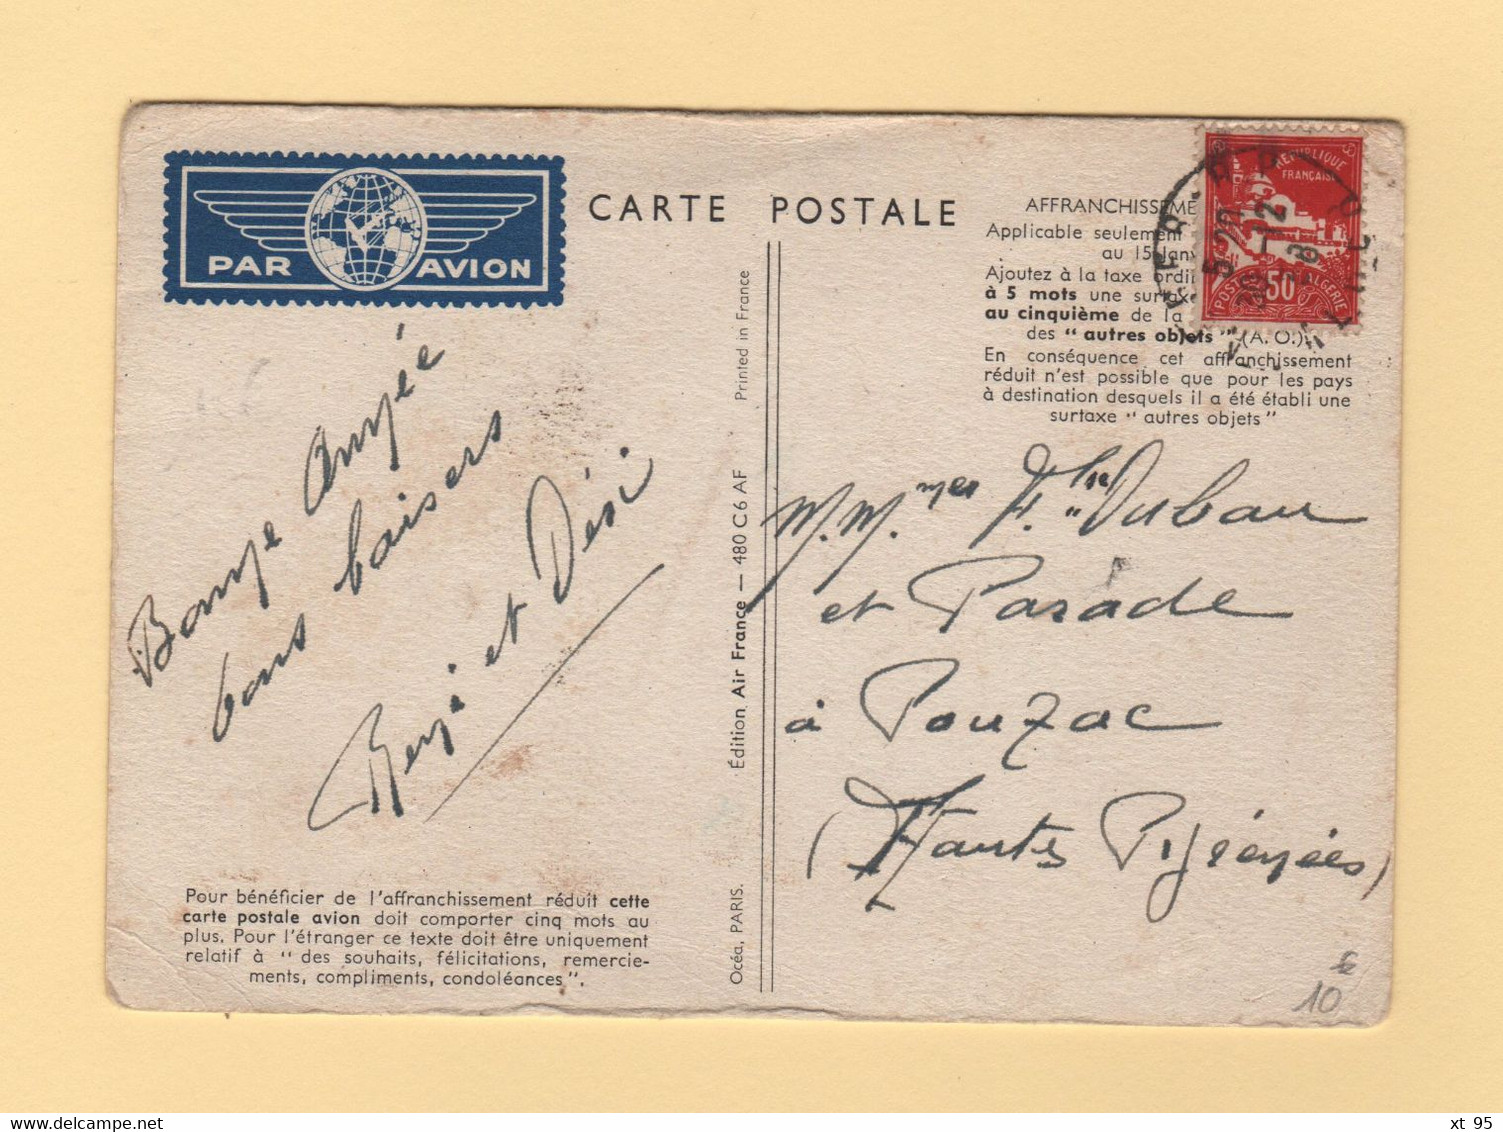 PAR AVION
CARTE POSTALE
AFFRANCHISSEME
Applicable seulement
au 15 Janv
Ajoutez à la taxe ordi
à 5 mots une surtaxe
au cinquième de la
des " autres objets " (A. O.)
En conséquence cet affranchissement
réduit n'est possible que pour les pays
à destination desquels il a été établi une
surtaxe " autres objets"
RÉPUBLIQUE
FRANÇAISE
50
POSTES ALGERIE
5 20
30 -12
Bonne Année
bons baisers
et Dési
Printed in France
Édition Air France — 480 C6 AF
Océa, PARIS.
M.M. mes F. Duban
et Parade
à Pouzac
(Hautes Pyrénées)
Pour bénéficier de l'affranchissement réduit cette
carte postale avion doit comporter cinq mots au
plus. Pour l'étranger ce texte doit être uniquement
relatif à " des souhaits, félicitations, remercie-
ments, compliments, condoléances".
10
xt 95